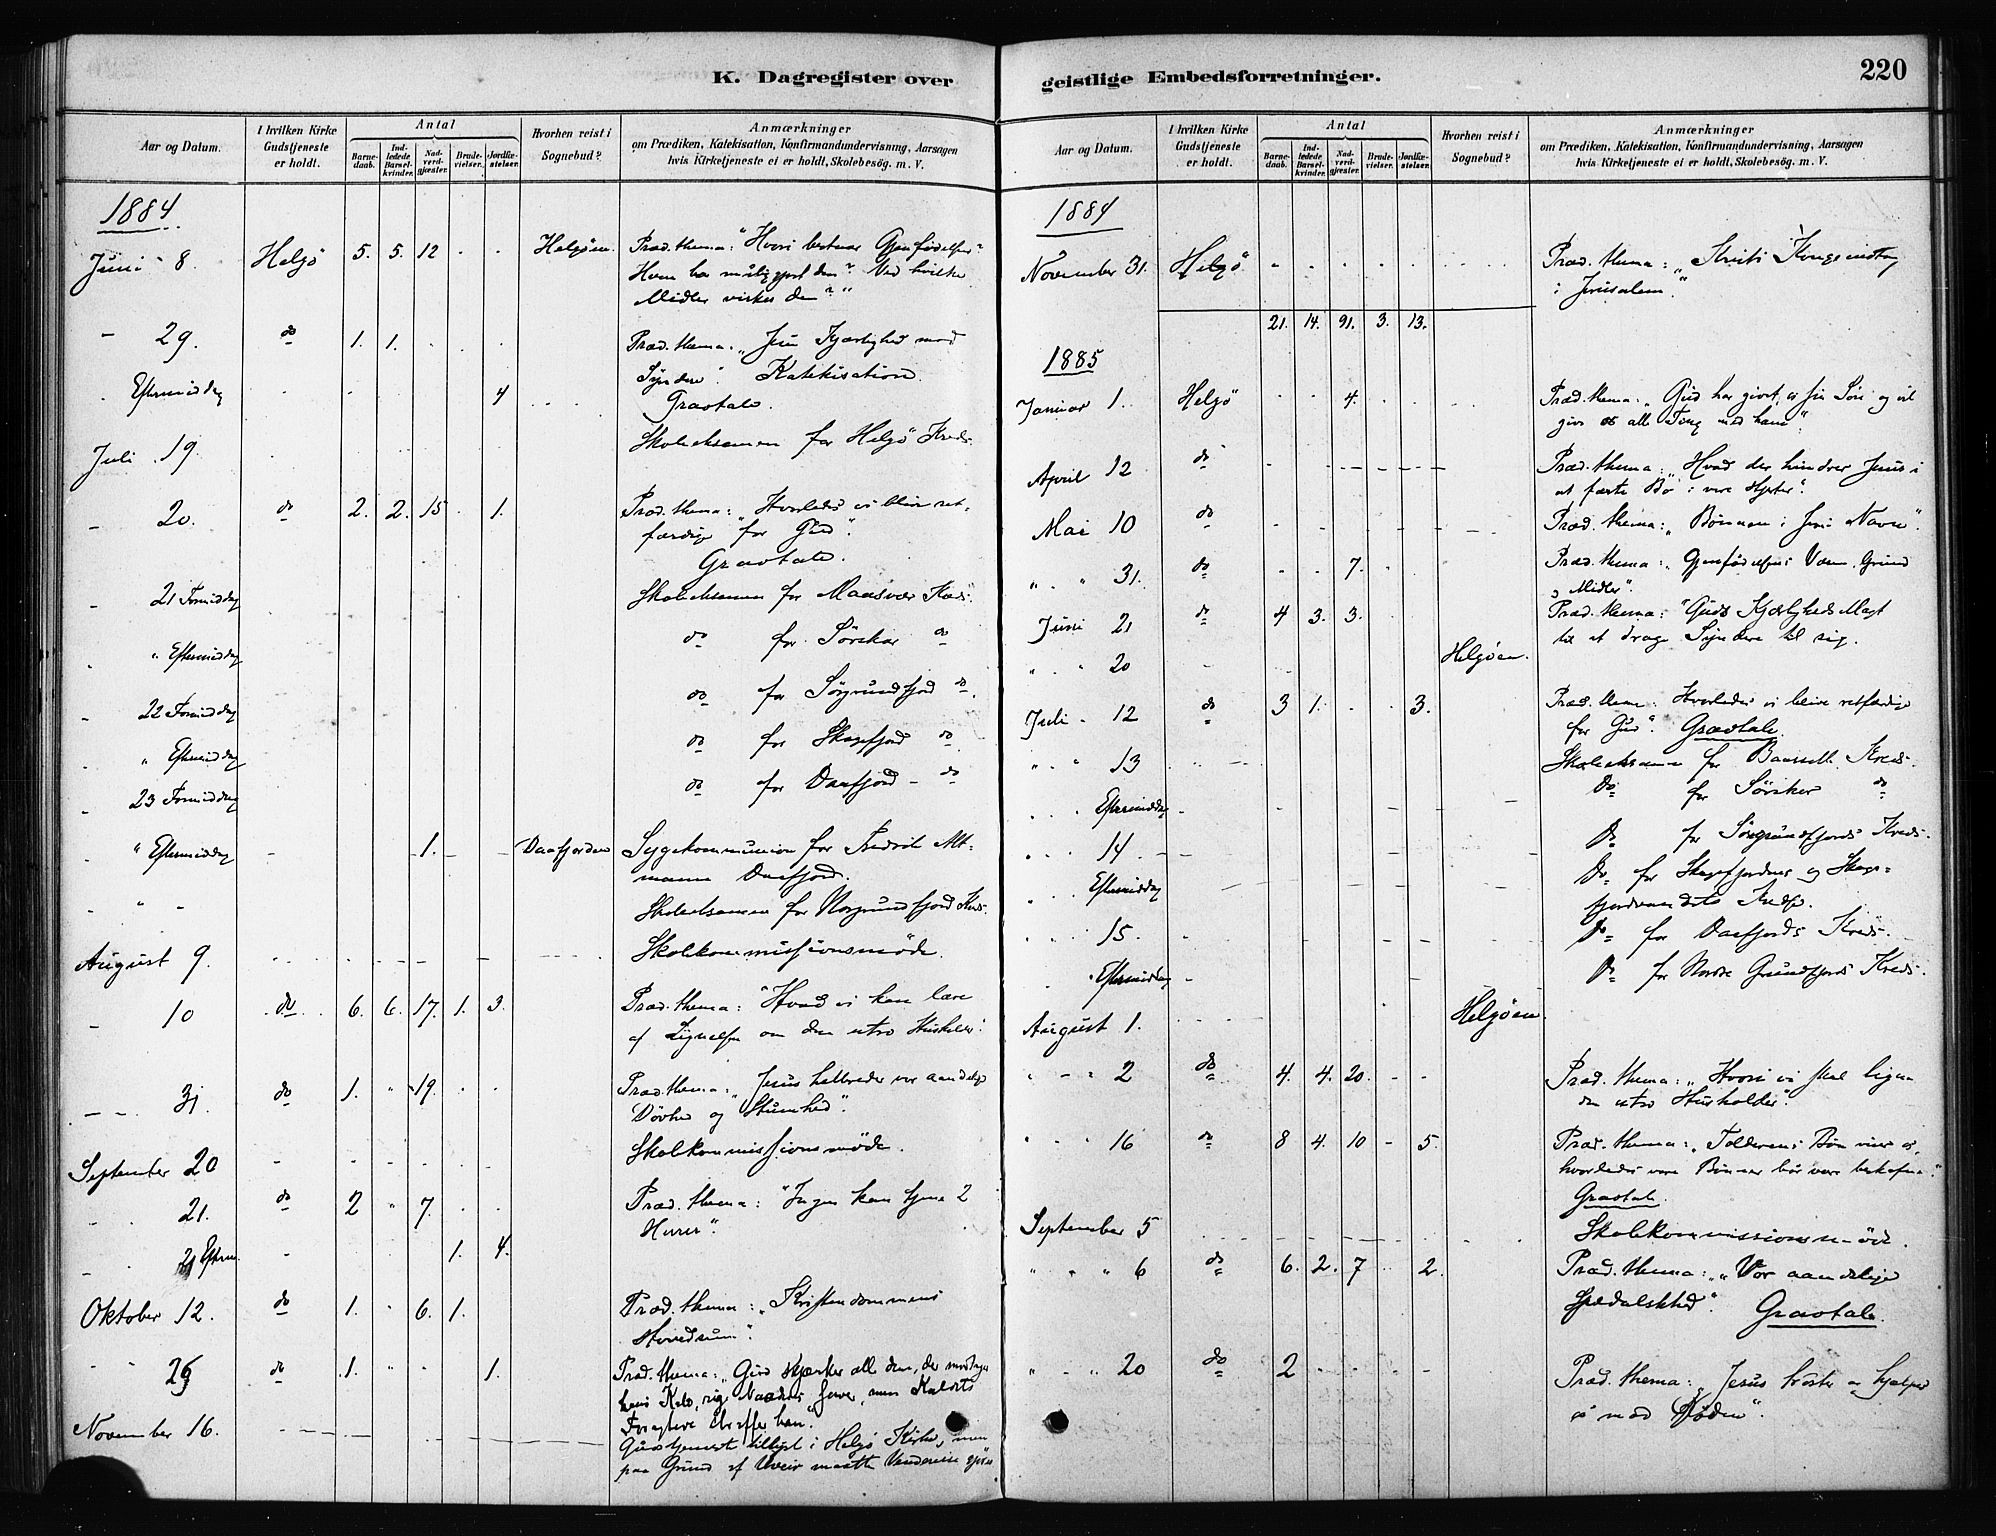 K. Dagregister over
Aar og Datum.
I hvilken Kirke Gudstjeneste er holdt.
Antal
Barnedaab.
Indledede Barselkvinder.
Nadverdgjæster.
Brudevielser.
Jordfæstelser.
Hvorhen reist i Sognebud?
Anmærkninger
om Prædiken, Katekisation, Konfirmandundervisning, Aarsagen
hvis Kirketjeneste ei er holdt, Skolebesög. m. V.
1884
Juni 8 Helgö 5. 5. 12 . . Helgöen. Præd. thema: "Hvori bestaar Gjenfødelsen?
Hvem har muliggjort den? Ved hvilke
Midler virkes den?"
- 29. do 1. 1. . . . Præd. thema: "Jesu Kjærlighed mod
Syndere". Katekisation.
. Eftermiddag 4 Gravtale.
Juli 19. Skoleeksamen for Helgö Kreds.
- 20. do 2. 2. 15 . 1. Præd. thema: "Hvorledes vi blive ret-
færdige for Gud".
Gravtale.
- 21 Formiddag Skoleeksamen for Maasvær Kreds.
" Eftermiddag do for Sörskar do
- 22 Formiddag do for Sörgrundfjord do
" Eftermiddag do for Skogsfjord do
- 23 Formiddag do for Daafjord - do
" Eftermiddag 1. Daafjorden Sygekommunion for Fredrik Alt-
mann Daafjord.
- " - Skoleeksamen for Norgrundfjord Kreds.
August 9. Skolekommissionsmöde.
- 10 do 6. 6. 17. 1. 3. Præd. thema: "Hvad vi kan lære
af Lignelsen om den utro Husholder".
- - 31. do 1. " 19. . . Præd. thema: "Jesus helbreder vor aandelige
Dövhed og Stumhed".
September 20 Skolekommissionsmöde.
21. do 2 " 7. . . Præd. thema: "Ingen kan tjene 2
Herrer".
21 Efterm. 1. 4.
Oktober 12. do 1. . 6. 1. Præd. thema: "Kristendommens
Hovedsum".
26 do 1. " . . 1. Præd. thema: "Gud skjænker all dem, der modtager
hans Kald, sig Naadens Gaver, men Kaldets
Foragtere straffer han."
November 16. Gudstjeneste tillyst i Helgö Kirke, men
paa Grund af Uveir maatte Vendereise gjöres
geistlige Embedsforretninger.
220
Aar og Datum.
I hvilken Kirke Gudstjeneste er holdt.
Antal
Barnedaab.
Indledede Barselkvinder.
Nadverdgjæster.
Brudevielser.
Jordfæstelser.
Hvorhen reist i Sognebud?
Anmærkninger
om Prædiken, Katekisation, Konfirmandundervisning, Aarsagen
hvis Kirketjeneste ei er holdt, Skolebesög. m. V.
1884
November 31. Helgö Præd. thema: "Kristi Kongeindtog
i Jerusalem."
21. 14. 91. 3. 13.
1885
Januar 1. Helgö . . 4. . Præd. thema: "Gud har givet os sin Sön og vil
give os alle Ting med ham".
April 12 do Præd. thema: "Hvad der hindrer Jesus i
at fæste Bo i vore Hjerter".
Mai 10 do Præd. thema: "Bönnen i Jesu Navn".
" " 31. do . . 7. . Præd. thema: "Gjenfødelsens Væsen, Grund
og Midler".
Juni 21 do 4 3. 3. Præd. thema: "Guds Kjærligheds Magt
til at drage Syndere til sig.
" " 20 Helgöen.
Juli - 12 do 3 1. . . 3. Præd. thema: Hvorledes vi blive retfærdige
for Gud". Gravtale.
" " 13 Skoleeksamen for Kreds.
. . Eftermiddag Do for Sörskar do
. . 14 Do for Sörgrundfjords Kreds.
. . Eftermiddag Do for Skogsfjordens og Skogs-
fjordvandets Kredse.
. . 15 Do for Daafjords Kreds.
. Eftermiddag Do for Nordre Grundfjords Kreds.
August 1. Helgöen.
" - " 2 do 4. 4. 20. - - Præd. thema: "Hvori vi skal ligne
den utro Husholder".
" " 16 do 8 4. 10 - 5. Præd. thema: "Tolderens Bön viser os,
hvorledes vore Bönner bör være beskafne".
Gravtale.
September 5 Skolekommissionsmöde.
" " " 6 do 6. 2. 7 . 2. Præd. thema: "Vor aandelige
Spedalskhed". Gravtale.
" " 20 do 2 Præd. thema: "Jesus tröster og hjælper
os mod Döden".